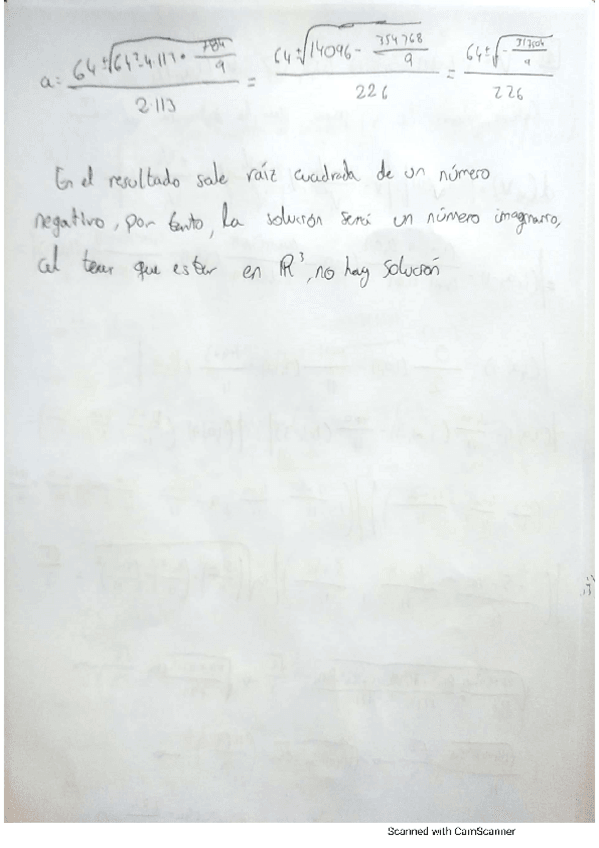 a = 64 ± √(64² - 4·113 · 784/9) / 2·113 = 64 ± √(14096 - 354768/9) / 226 = 64 ± √(- 317504/9) / 226
En el resultado sale raíz cuadrada de un número
negativo, por tanto, la solución será un número imaginario,
al tener que estar en ℝ³, no hay solución
Scanned with CamScanner